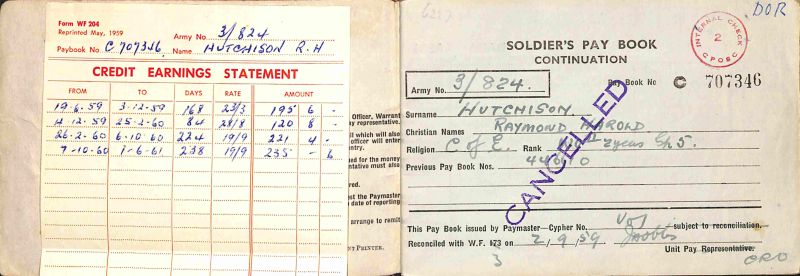 Form WF 204
Reprinted May, 1959
Army No. 3/824
Paybook No C 707346 Name HUTCHISON R.H
CREDIT EARNINGS STATEMENT
FROM TO DAYS RATE AMOUNT
19-6-59 3-12-59 168 23/3 195 6 -
4-12-59 25-2-60 84 28/8 120 8 -
26-2-60 6-10-60 224 19/9 221 4 -
7-10-60 1-6-61 238 19/9 235 - 6
Officer, Warrant
ry representative.
ll which will also
officer will enter
ntry.
ned for the money
ntative must also
red.
st the Paymaster
date of reporting
arrange to remit
NT PRINTER.
DOR
INTERNAL CHECK
2
CPOSC
SOLDIER'S PAY BOOK
CONTINUATION
Army No. 3/824.
Pay Book No C 707346
Surname HUTCHISON
Christian Names RAYMOND HAROLD
Religion C of E. Rank
Previous Pay Book Nos.
CANCELLED
This Pay Book issued by Paymaster—Cypher No. subject to reconciliation.
Reconciled with W.F. 173 on 2/9/59
Unit Pay Representative.
3